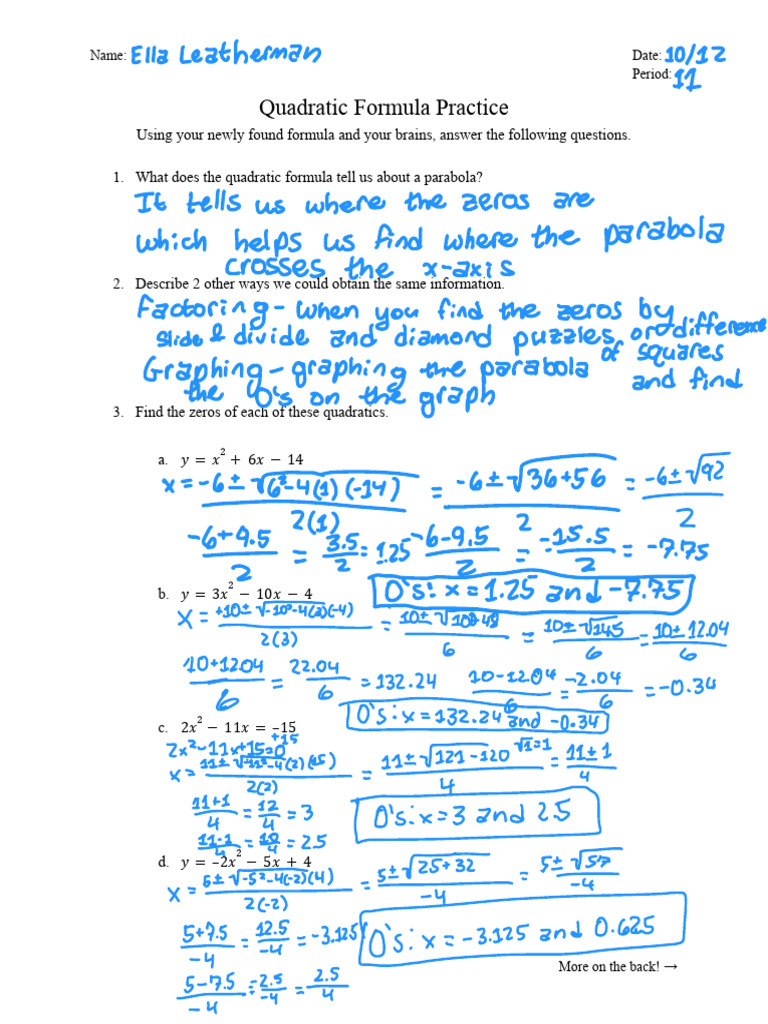 Name: Ella Leatherman Date: 10/12
Period: 11
Quadratic Formula Practice
Using your newly found formula and your brains, answer the following questions.
1. What does the quadratic formula tell us about a parabola?
It tells us where the zeros are
which helps us find where the parabola
crosses the x-axis
2. Describe 2 other ways we could obtain the same information.
Factoring - when you find the zeros by
slide & divide and diamond puzzles or difference
of squares
Graphing - graphing the parabola and find
the 0's on the graph
3. Find the zeros of each of these quadratics.
a. y = x² + 6x − 14
x = -6 ± √(6²-4(1)(-14)) / 2(1) = -6 ± √(36+56) / 2 = -6 ± √92 / 2
-6+9.5 / 2 = 3.5 / 2 = 1.25 -6-9.5 / 2 = -15.5 / 2 = -7.75
0's: x = 1.25 and -7.75
b. y = 3x² − 10x − 4
x = +10 ± √(-10²-4(3)(-4)) / 2(3) = 10 ± √(100 48) / 6 = 10 ± √145 / 6 = 10 ± 12.04 / 6
10+12.04 / 6 = 22.04 / 6 = 132.24 10-12.04 / 6 = -2.04 / 6 = -0.34
0's: x = 132.24 and -0.34
c. 2x² − 11x = −15
+15
2x²-11x+15=0
x = 11 ± √(-11²-4(2)(15)) / 2(2) = 11 ± √(121-120) / 4 √1=1 = 11 ± 1 / 4
11+1 / 4 = 12 / 4 = 3
11-1 / 4 = 10 / 4 = 2.5
0's: x = 3 and 2.5
d. y = −2x² − 5x + 4
x = 5 ± √(-5²-4(-2)(4)) / 2(-2) = 5 ± √(25+32) / -4 = 5 ± √57 / -4
5+7.5 / -4 = 12.5 / -4 = -3.125
0's: x = -3.125 and 0.625
5-7.5 / -4 = -2.5 / -4 = 2.5 / 4
More on the back! →